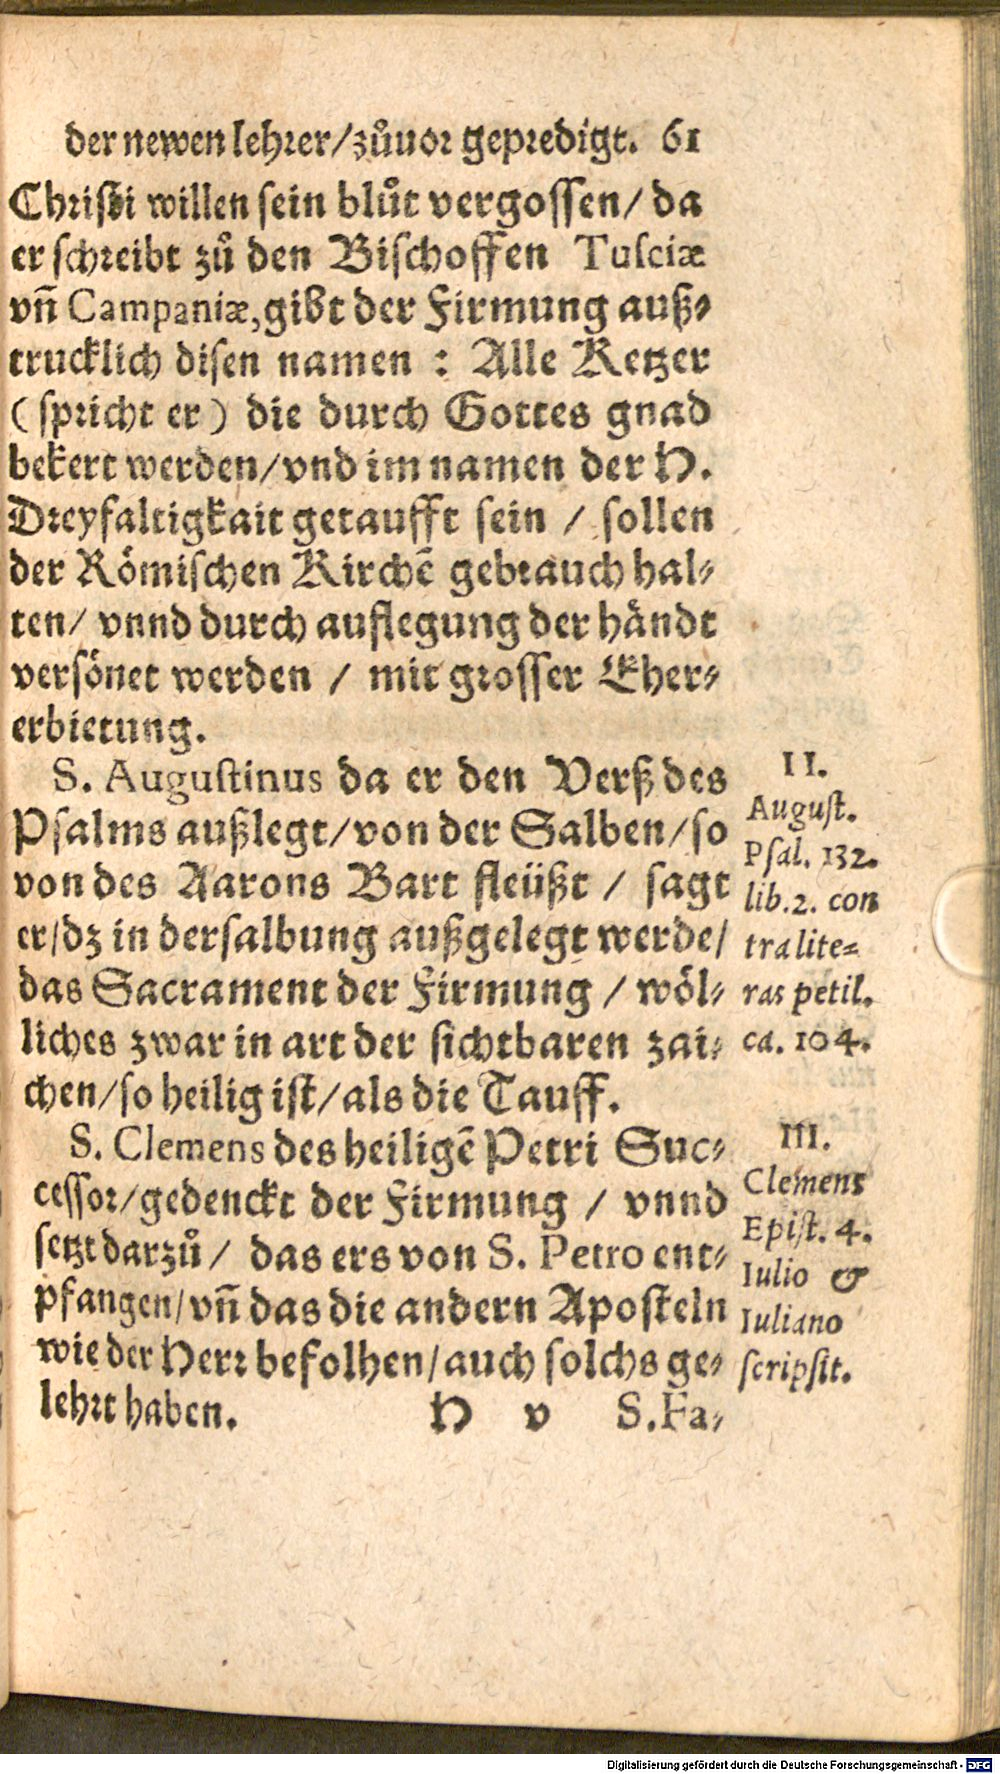 der newen lehrer/zůuor gepredigt. 61
Christi willen sein blůt vergossen/ da
er schreibt zů den Bischoffen Tusciæ
vñ Campaniæ, gibt der Firmung auß⸗
trucklich disen namen : Alle Ketzer
( spricht er ) die durch Gottes gnad
bekert werden/vnd im namen der H.
Dreyfaltigkait getaufft sein / sollen
der Römischen Kirchē gebrauch hal⸗
ten/ vnnd durch auflegung der händt
versönet werden / mit grosser Eher⸗
erbietung.
S. Augustinus da er den Verß des
Psalms außlegt/von der Salben/so
von des Aarons Bart fleüßt / sagt
er/dz in dersalbung außgelegt werde/
das Sacrament der Firmung / wöl⸗
liches zwar in art der sichtbaren zai⸗
chen/so heilig ist/als die Tauff.
S. Clemens des heiligē Petri Suc⸗
cessor/gedenckt der Firmung / vnnd
setzt darzů / das ers von S. Petro ent⸗
pfangen/vñ das die andern Aposteln
wie der Herr befolhen/auch solchs ge⸗
lehrt haben.
H v S. Fa⸗
II.
August.
Psal. 132.
lib. 2. con
tra lite⸗
ras petil.
ca. 104.
III.
Clemens
Epist. 4.
Iulio &
Iuliano
scripsit.
Digitalisierung gefördert durch die Deutsche Forschungsgemeinschaft - DFG